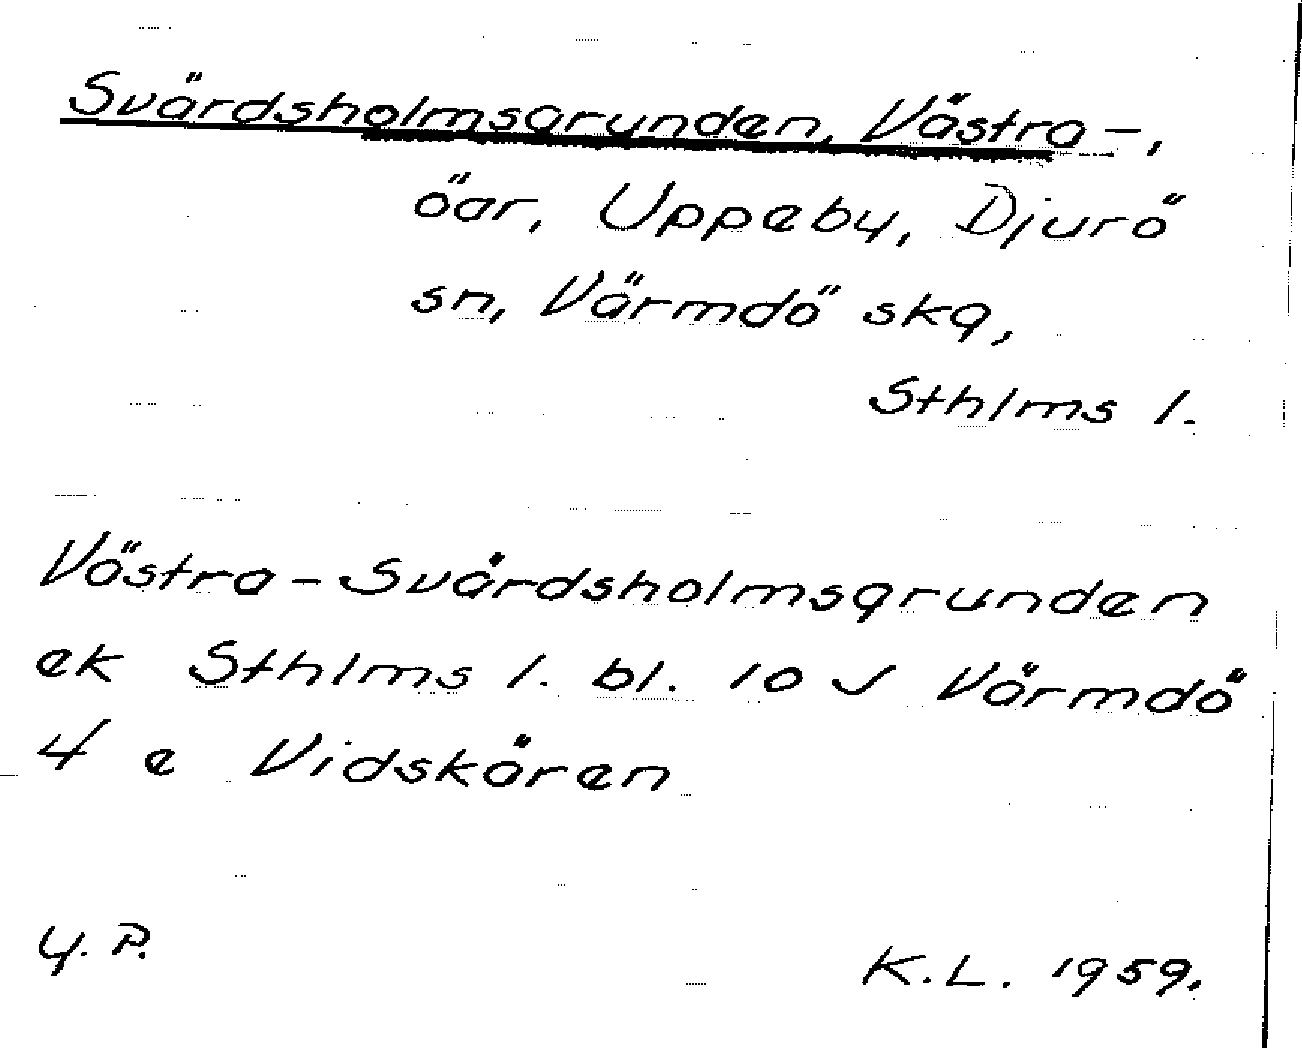 Svärdsholmsgrunden, Västra -,
öar, Uppeby, Djurö
sn, Värmdö skg,
Sthlms l.
Västra-Svärdsholmsgrunden
ek Sthlms l. bl. 10 J Värmdö
4 e Vidskären
Y. P.
K.L. 1959.